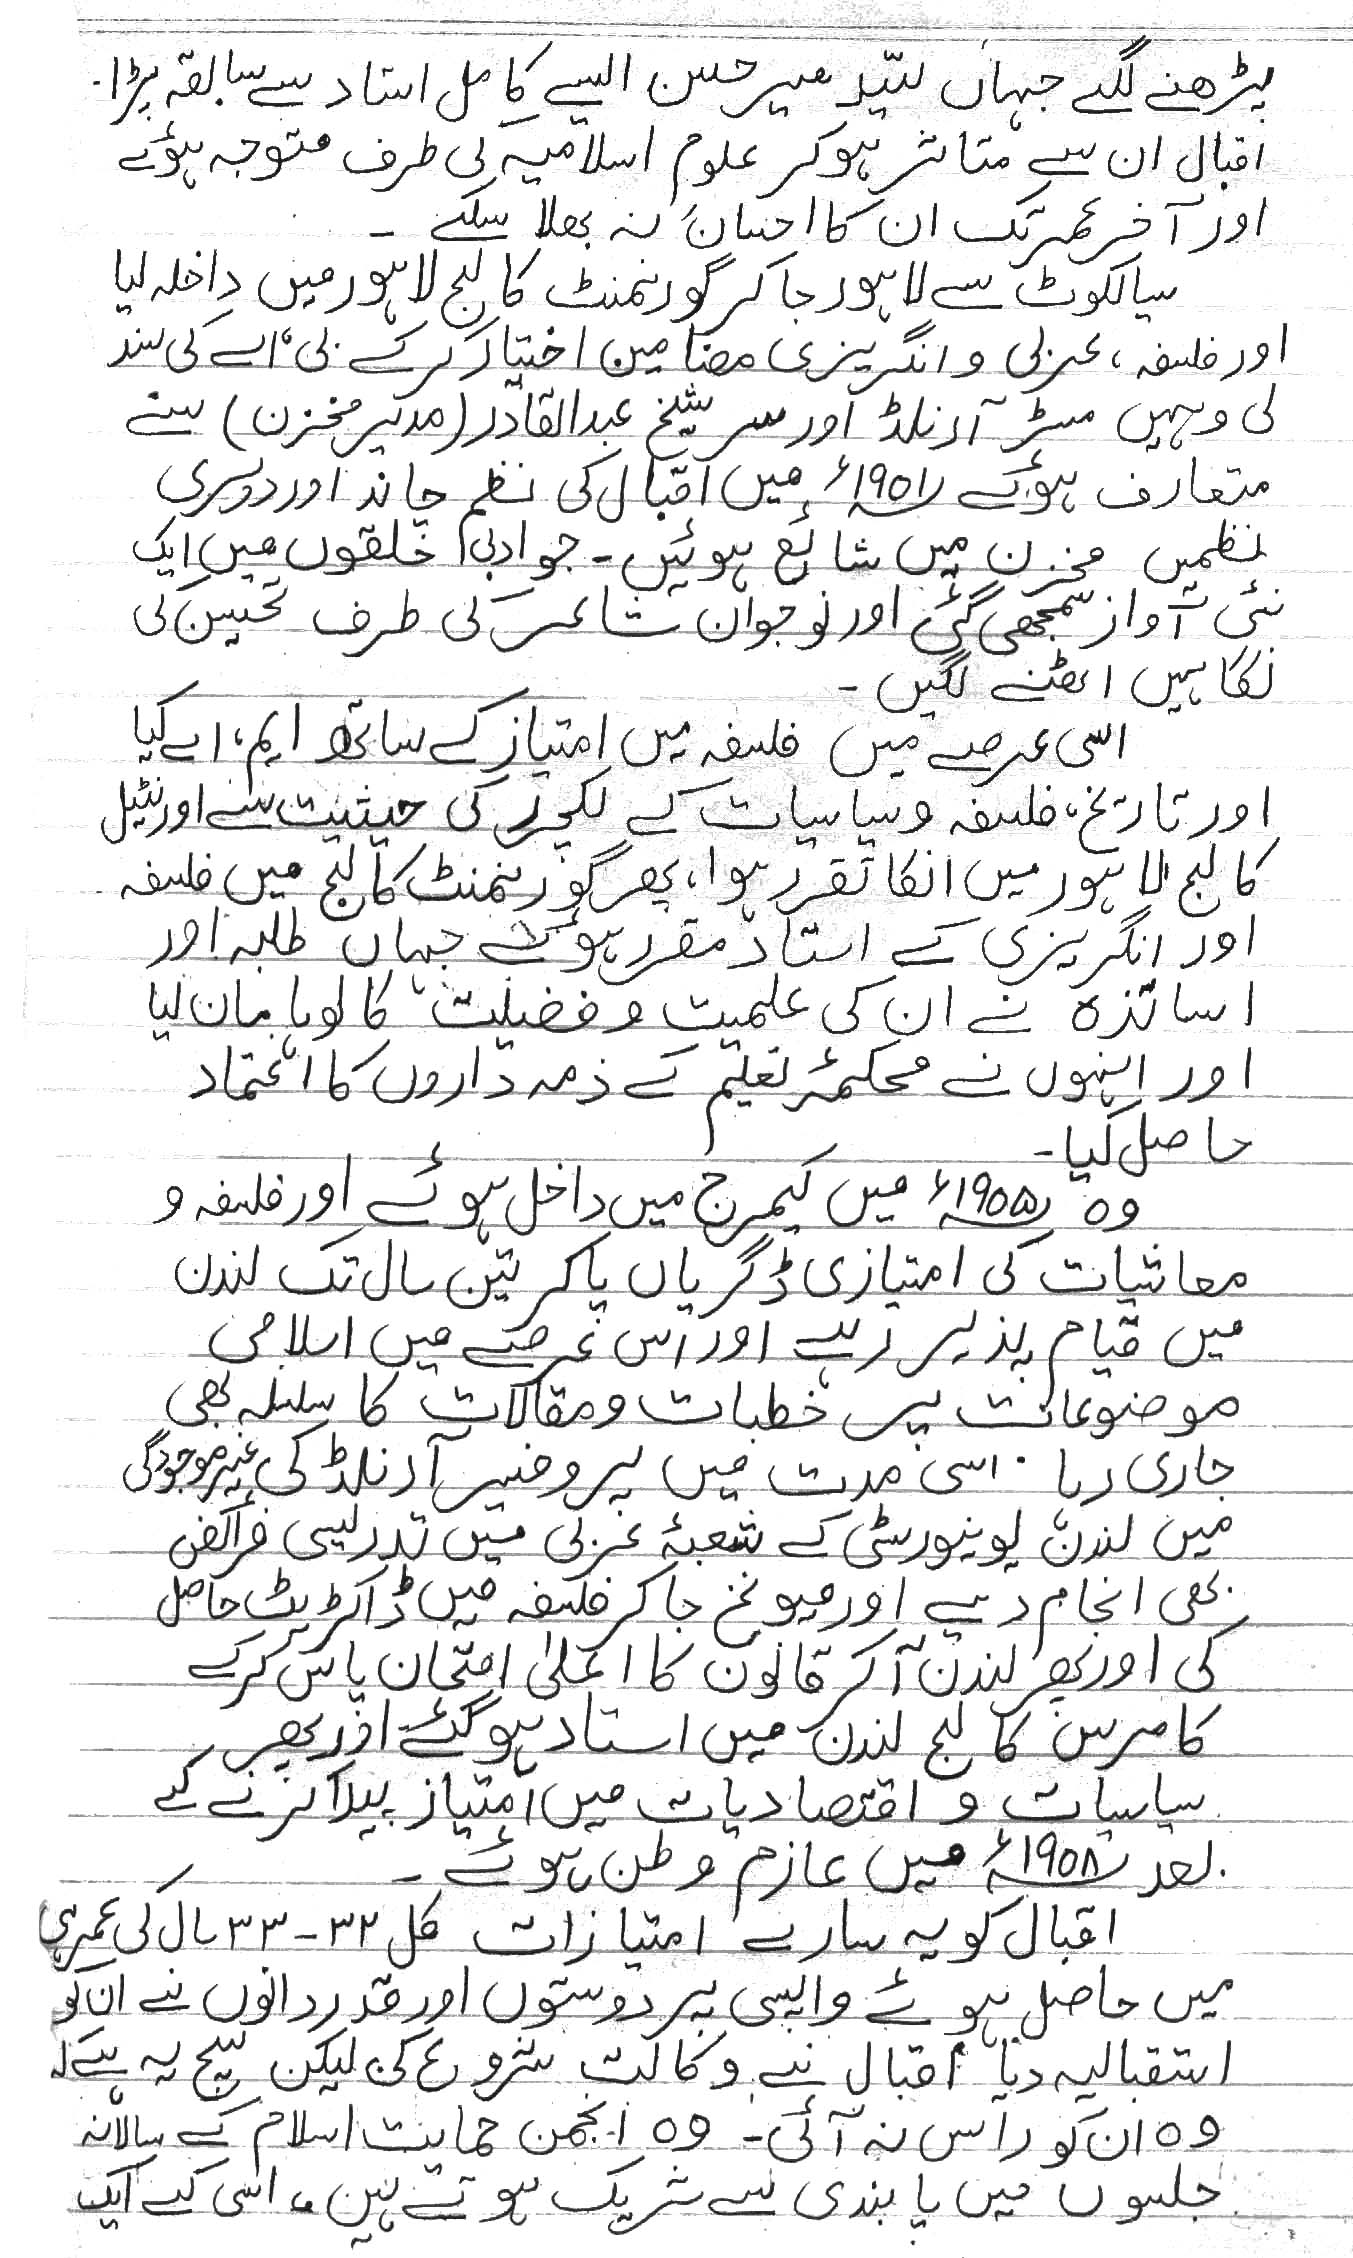 پڑھنے لگے جہاں سیّد میر حسن ایسے کامل استاد سے سابقہ پڑا۔
اقبال ان سے متاثر ہو کر علوم اسلامیہ کی طرف متوجہ ہوئے
اور آخر عمر تک ان کا احسان نہ بھلا سکے ۔
سیالکوٹ سے لاہور جا کر گورنمنٹ کالج لاہور میں داخلہ لیا
اور فلسفہ، عربی و انگریزی مضامین اختیار کر کے بی، اے کی سند
لی وہیں مسٹر آرنلڈ اور سر شیخ عبدالقادر (مدیر مخزن) سے
متعارف ہوئے ۱۹۰۱ء میں اقبال کی نظم چاند اور دوسری
نظمیں مخزن میں شائع ہوئیں۔ جو ادبی حلقوں میں ایک
نئی آواز سمجھی گئی اور نوجوان شاعر کی طرف تحسین کی
نگاہیں اٹھنے لگیں ۔
اسی عرصے میں فلسفہ میں امتیاز کے ساتھ ایم، اے کیا
اور تاریخ، فلسفہ و سیاسیات کے لکچرر کی حیثیت سے اورنٹیل
کالج لاہور میں انکا تقرر ہوا، پھر گورنمنٹ کالج میں فلسفہ
اور انگریزی کے استاد مقرر ہوئے جہاں طلبہ اور
اساتذہ نے ان کی علمیت و فضیلت کا لوہا مان لیا
اور انہوں نے محکمۂ تعلیم کے ذمہ داروں کا اعتماد
حاصل کیا۔
وہ ۱۹۰۵ء میں کیمرج میں داخل ہوئے اور فلسفہ و
معاشیات کی امتیازی ڈگریاں پا کر تین سال تک لندن
میں قیام پذیر رہے اور اس عرصے میں اسلامی
موضوعات پر خطبات و مقالات کا سلسلہ بھی
جاری رہا ۔ اسی مدت میں پروفیسر آرنلڈ کی غیر موجودگی
میں لندن یونیورسٹی کے شعبۂ عربی میں تدریسی فرائض
بھی انجام دیے اور میونخ جا کر فلسفہ میں ڈاکٹریٹ حاصل
کی اور پھر لندن آ کر قانون کا اعلیٰ امتحان پاس کر کے
کامرس کالج لندن میں استاد ہو گئے اور پھر
سیاسیات و اقتصادیات میں امتیاز پیدا کرنے کے
بعد ۱۹۰۸ء میں عازم وطن ہوئے ۔
اقبال کو یہ سارے امتیازات کل ۳۲-۳۳ سال کی عمر ہی
میں حاصل ہوئے واپسی پر دوستوں اور قدر دانوں نے ان کو
استقبالیہ دیا اقبال نے وکالت شروع کی لیکن سچ یہ ہے کہ
وہ ان کو راس نہ آئی۔ وہ انجمن حمایت اسلام کے سالانہ
جلسوں میں پابندی سے شریک ہوتے ہیں، اسی کے ایک